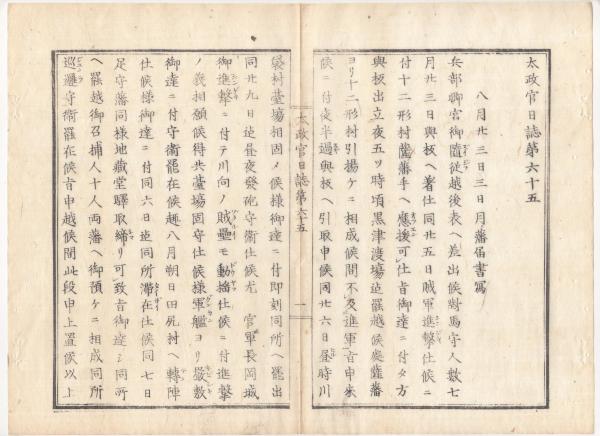 太政官日誌第六十五
八月廿三日三日月藩届書寫
兵部卿宮御隨從越後表ヘ差出候對馬守人數七
月廿三日與板ヘ着仕同廿五日賊軍進擊仕候ニ
付十二形村薩藩手ヘ應援可仕旨御達ニ付夕方
與板出立夜五ツ時頃黒津渡塲迄罷越候處薩藩
ヨリ十二形村引揚ケニ相成候間不及進軍旨申来
候ニ付夜半過與板ヘ引取申候同廿六日昼時川
太政官日誌第六十五
一
袋村臺塲相固メ候様御達ニ付即刻同所ヘ罷出
同廿九日迄昼夜發砲守衞仕候尤官軍長岡城
御進擊ニ付テ川向ノ賊壘モ動搖仕候ニ付進擊
ノ義相願候得共臺塲固守仕候様軍艦ヨリ嚴敷
御達ニ付守衞罷在候趣八月朔日田尻村ヘ轉陣
仕候様御達ニ付同六日迄同所滯在仕候同七日
足守藩同様地藏堂驛取締リ可致旨御達シ同所
ヘ罷越御召捕人十人両藩ヘ御預ケニ相成同所
巡邏守衞罷在候旨申越候間此段申上置候以上